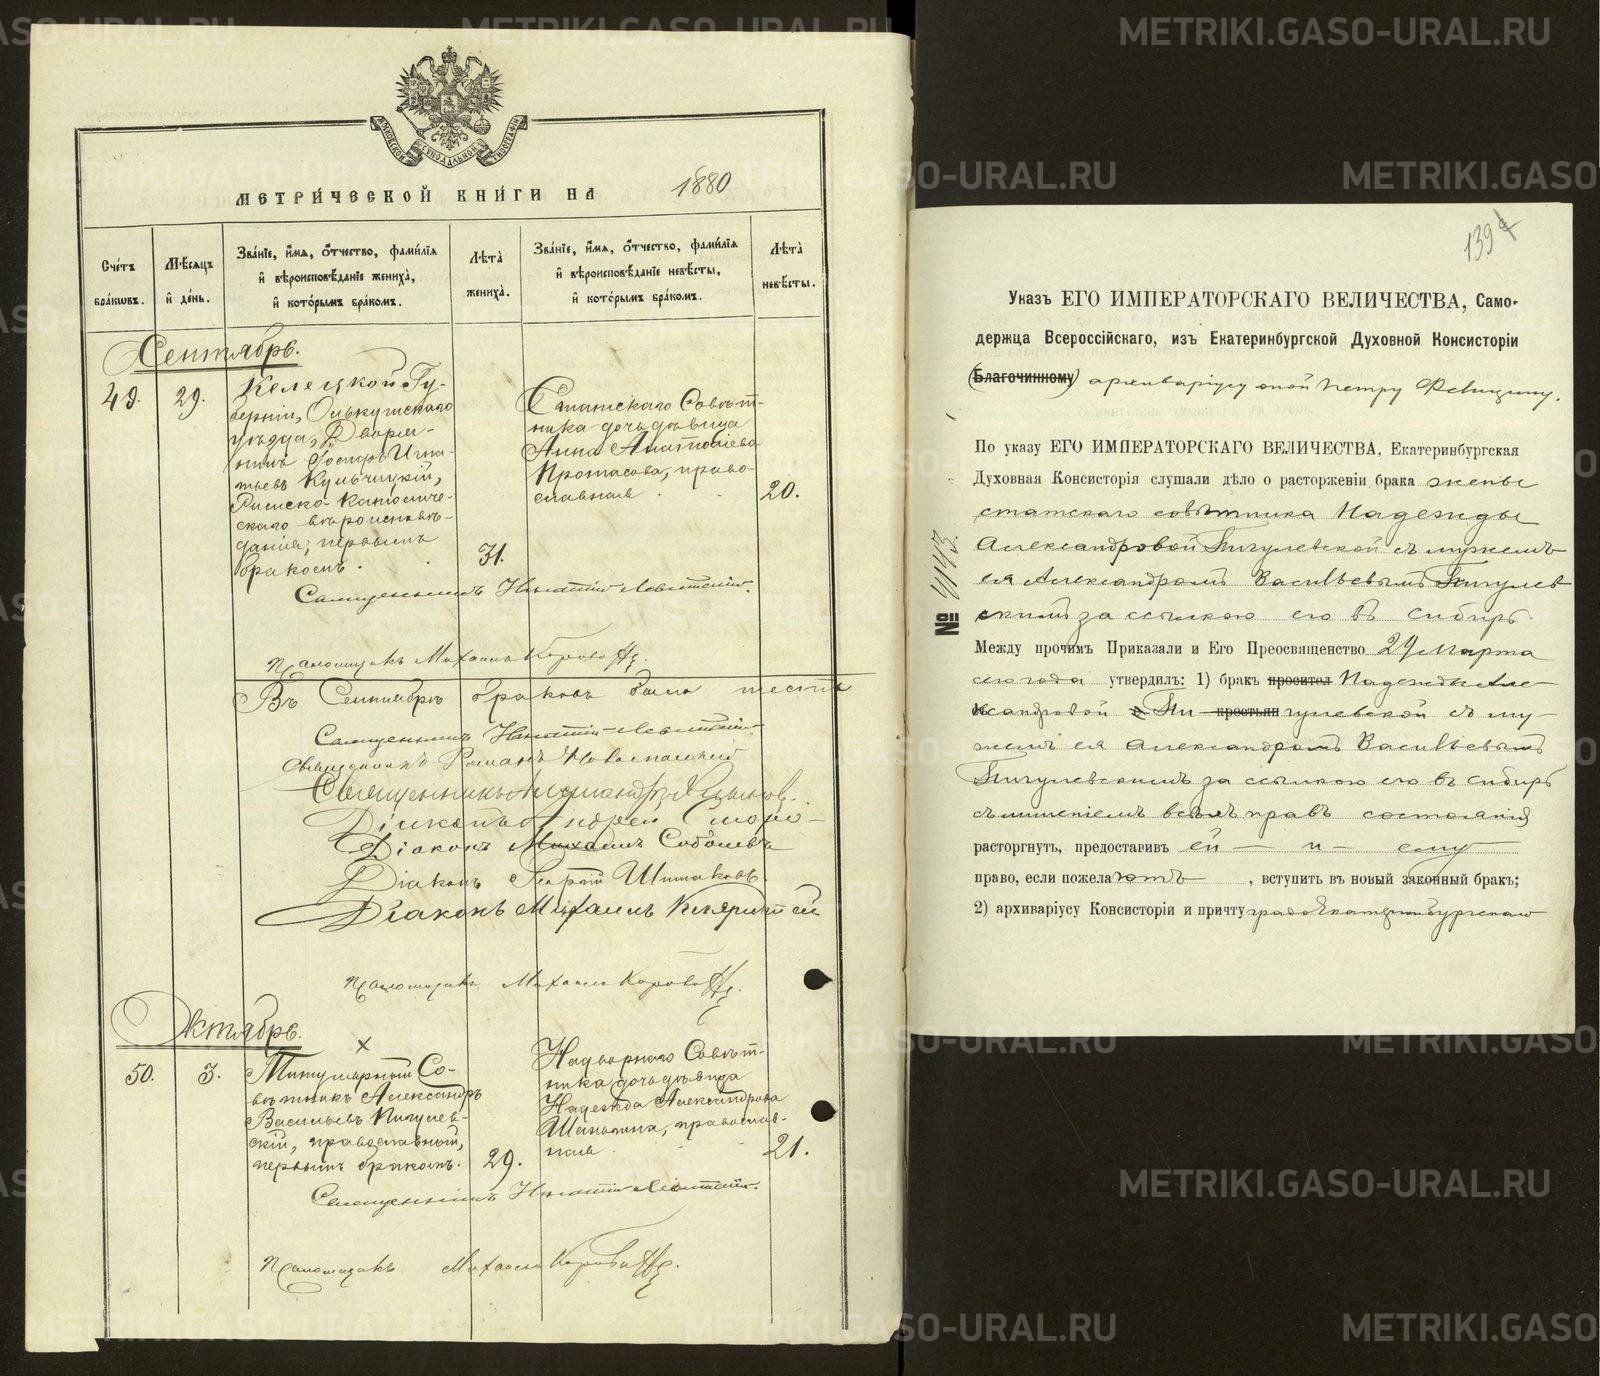 METRIKI.GASO-URAL.RU
МОСКОВСКОЙ СѴНОДАЛЬНОЙ ТИПОГРАФІИ
МЕТРИ́ЧЕСКОЙ КНИ́ГИ НА 1880
Сче́тъ бра́кωвъ.
Мѣ́сяцъ и҆ де́нь.
Зва́нїе, и҆́мя, ѻ҆́тчество, фами́лїя и҆ вѣроисповѣ́данїе жениха̀, и҆ кото́рымъ бра́комъ.
Лѣ́та̀ жениха̀.
Зва́нїе, и҆́мя, ѻ҆́тчество, фами́лїя и҆ вѣроисповѣ́данїе невѣ́сты, и҆ кото́рымъ бра́комъ.
Лѣ́та̀ невѣ́сты.
Сентябрь.
49.
29.
Келецкой Гу-
берніи, Олькушскаго
уѣзда, Дворя-
нинъ Іосифъ Игна-
тьевъ Кульчицкій,
Римско-Католиче-
скаго вѣроисповѣ-
данія, первымъ
бракомъ.
31.
Статскаго Совѣт-
ника дочь дѣвица
Анна Анатоліева
Протасова, право-
славная.
20.
Священникъ Игнатій Левитскій.
Псаломщикъ Михаилъ Коровинъ.
Въ Сентябрѣ браковъ было шесть
Священникъ Игнатій Левитскій
Священникъ Романъ
Священникъ Александръ
Діаконъ Андрей
Діаконъ Михаилъ Соболевъ
Діаконъ Георгій Шишаковъ.
Діаконъ Михаилъ
Псаломщикъ Михаилъ Коровинъ.
Октябрь.
50.
3.
Титулярный Со-
вѣтникъ Александръ
Васильевъ Пигулев-
скій, православный,
первымъ бракомъ.
29.
Надворнаго Совѣт-
ника дочь дѣвица
Надежда Александрова
православ-
ная.
21.
Священникъ Игнатій Левитскій.
Псаломщикъ Михаилъ Коровинъ.
139
Указъ ЕГО ИМПЕРАТОРСКАГО ВЕЛИЧЕСТВА, Само-
держца Всероссійскаго, изъ Екатеринбургской Духовной Консисторіи
(Благочинному) архиваріусу оной Петру
По указу ЕГО ИМПЕРАТОРСКАГО ВЕЛИЧЕСТВА, Екатеринбургская
Духовная Консисторія слушали дѣло о расторженіи брака жены
статскаго совѣтника Надежды
Александровой Пигулевской съ мужемъ
ея Александромъ Васильевымъ Пигулев
скимъ за ссылкою его въ Сибирь.
Между прочимъ Приказали и Его Преосвященство 29 Марта
сего года утвердилъ: 1) бракъ просител Надежды Але
ксандровой Пи крестьян гулевской съ му-
жемъ ея Александромъ Васильевымъ
Пигулевскимъ за ссылкою его въ Сибирь
съ лишеніемъ всѣхъ правъ состоянія
расторгнуть, предоставивъ ей — и — ему
право, если пожелаютъ, вступить въ новый законный бракъ;
2) архиваріусу Консисторіи и причту градо Екатеринбургскаго
№ 4143.